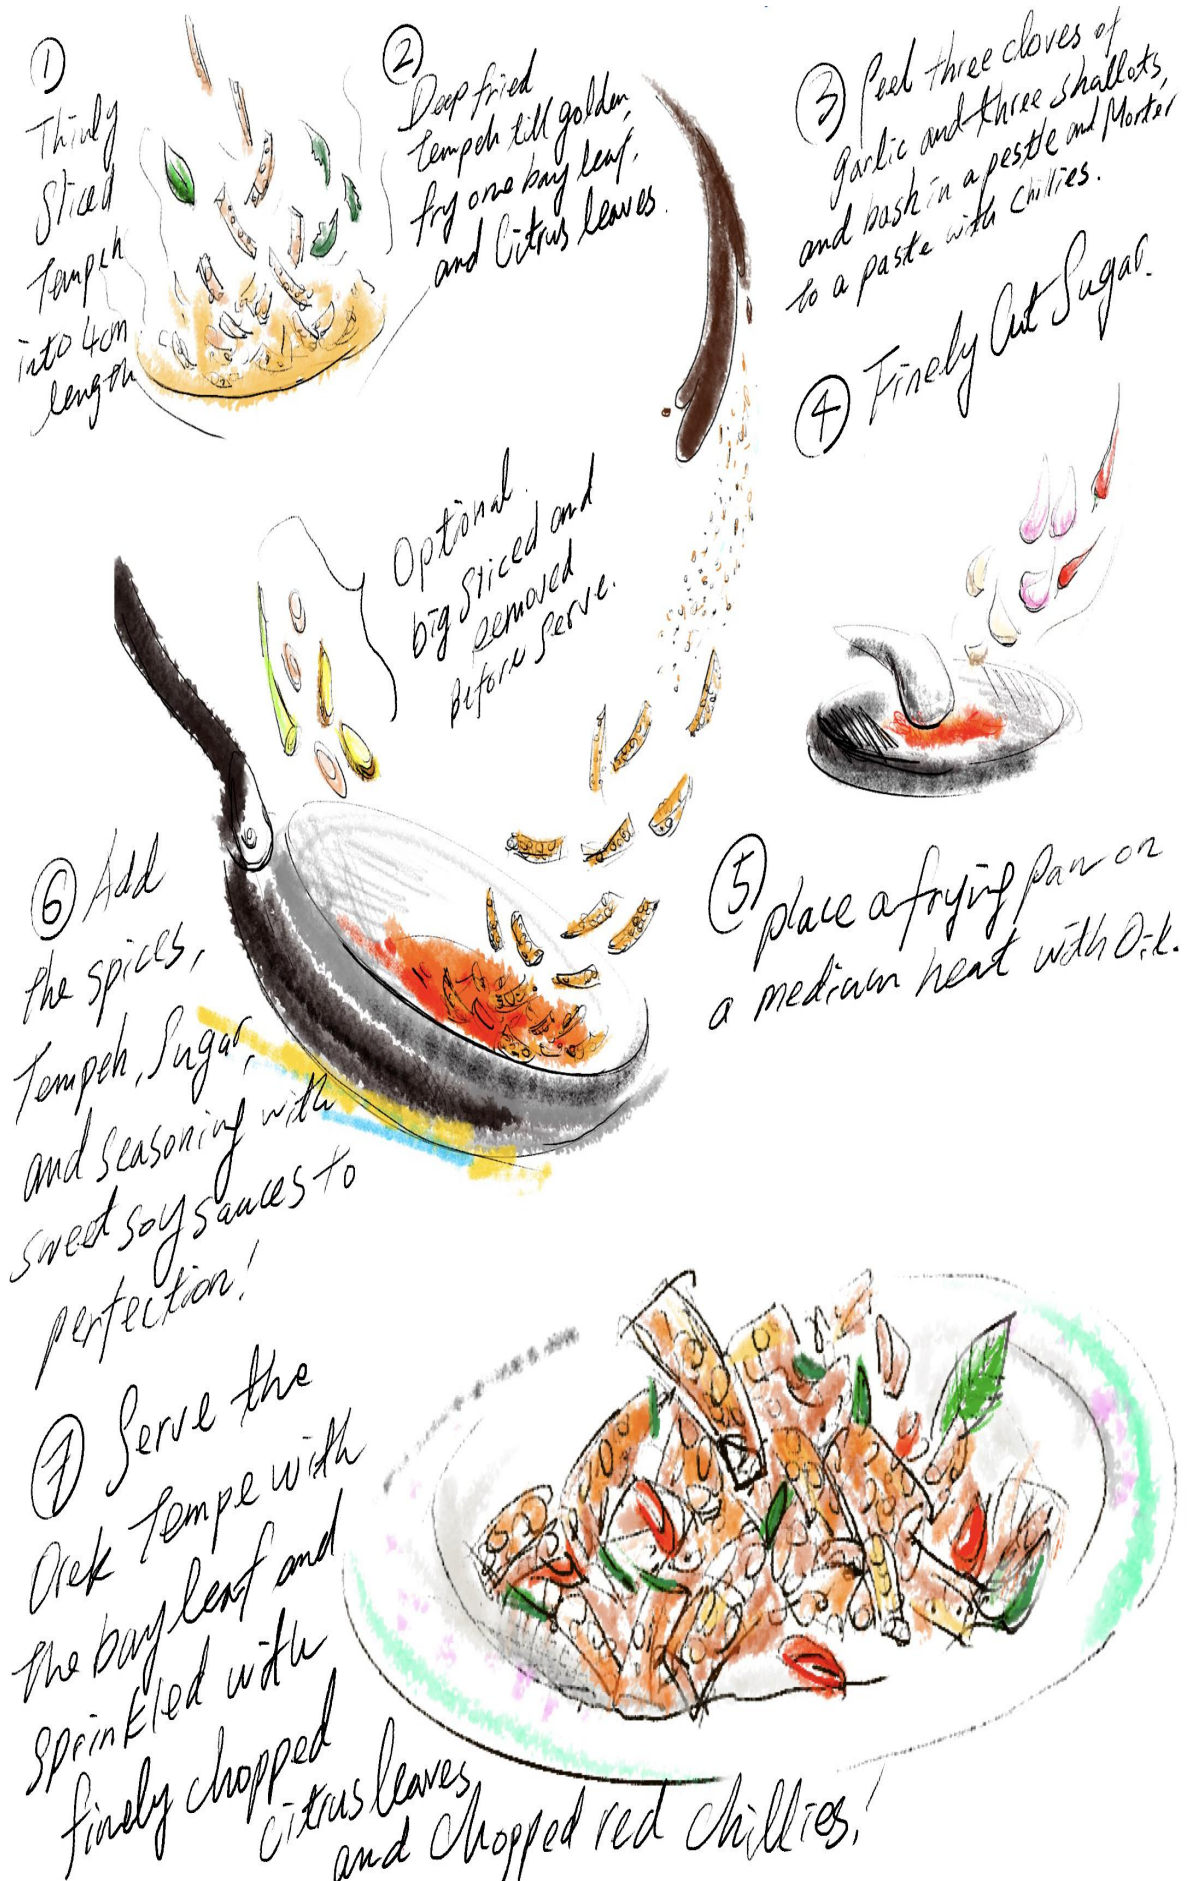 1
Thinly
Sliced
Tempeh
into 4cm
length
2
Deep fried
tempeh till golden,
fry one bay leaf,
and Citrus leaves.
3 Peel three cloves of
garlic and three shallots,
and bash in a pestle and Morter
to a paste with chillies.
4 Finely Cut Sugar.
Optional.
big Sliced and
removed
Before Serve.
5 place a frying Pan on
a medium heat with Oil.
6 Add
the spices,
Tempeh, Sugar,
and seasoning with
sweet soy sauces to
perfection!
7 Serve the
Orek Tempe with
the bay leaf and
sprinkled with
finely chopped
citrus leaves
and chopped red chillies!